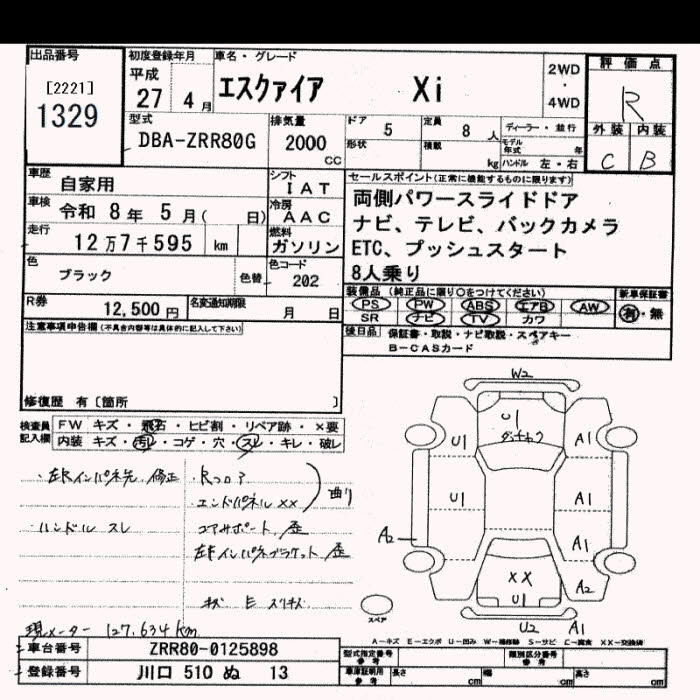 出品番号
[2221]
1329
初度登録年月
平成
27 4月
車名・グレード
エスクァイア Xi
2WD
・
4WD
評価点
R
外装 内装
C B
型式
DBA-ZRR80G
排気量
2000
cc
ドア 5
定員 8 人
形状
積載 kg
ディーラー・並行
モデル年式 年
ハンドル 左・右
車歴
自家用
シフト
IAT
車検
令和 8年 5月( 日)
冷房
AAC
走行
12万7千595 km
燃料
ガソリン
色
ブラック
色替
色コード
202
R券
12,500円
名変通知期限
月 日
セールスポイント(正常に機能するものに限ります)
両側パワースライドドア
ナビ、テレビ、バックカメラ
ETC、プッシュスタート
8人乗り
装備品 (純正品に限り○をつけてください)
PS PW ABS エアB AW
SR ナビ TV カワ
新車保証書
有・無
後日品 保証書・取説・ナビ取説・スペアキー
B-CASカード
注意事項申告欄(不具合内容等は具体的に記入して下さい)
修復歴 有〔箇所 〕
検査員記入欄
FW キズ・飛石・ヒビ割・リペア跡・×要
内装 キズ・汚れ・コゲ・穴・スレ・キレ・破レ
・左右インパネ先 修正
・Rフロア
・エンドパネル ××
曲り
・ハンドル スレ
コアサポート 歪
左右インパネブラケット 歪
現メーター 127,634km
W2
U1
U1
A1
U1
A1
A2
A1
××
U1
A2
U2
A1
スペア
A-キズ E-エクボ U-凹み W-補修跡 S-サビ C-腐食 XX-交換済
車台番号 ZRR80-0125898
登録番号 川口 510 ぬ 13
型式指定番号
参考
類別区分番号
参考
車庫証明用
参考
長さ cm
幅 cm
高さ cm